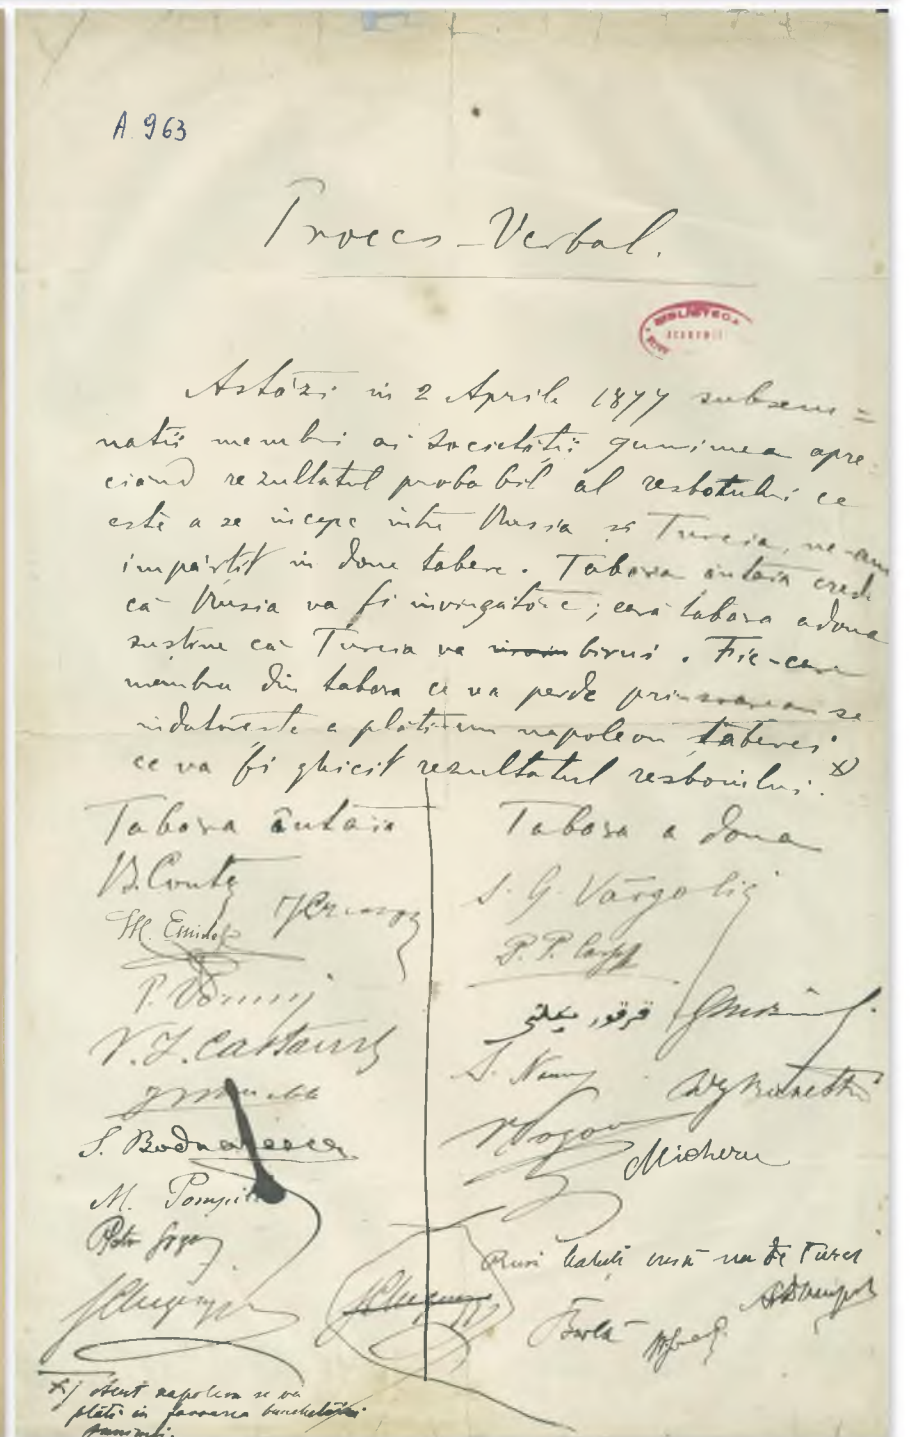 A. 963
Proces-Verbal.
BIBLIOTECA
ACADEMIEI
Astăzi in 2 Aprile 1877 subsem=
natii membri ai Societății Junimea apre
ciand rezultatul probabil al resbolului ce
este a se incepe intre Rusia și Turcia, ne-am
impărtit in doue tabere. Tabera ântaia crede
că Rusia va fi invingătóre; eară tabara a doua
sustine că Turcia va birui. Fie-care
membru din tabara ce va perde prinsoarea se
indatoreste a plăti un napoleon taberei
ce va fi ghicit rezultatul resboiului. x)
Tabara ântaia
V. Conta
M. Emin
V. I. Castano
S. Bodnarescu
M. Pompil
Petru
Tabara a doua
S. G. Vârgolici
P. P. Carp
S. Nanu
Micheru
Rusi batuti insă nu de Turci
A D Xenopol
x) Acest napoleon se va
plăti in favoarea banchetului
Junimei.